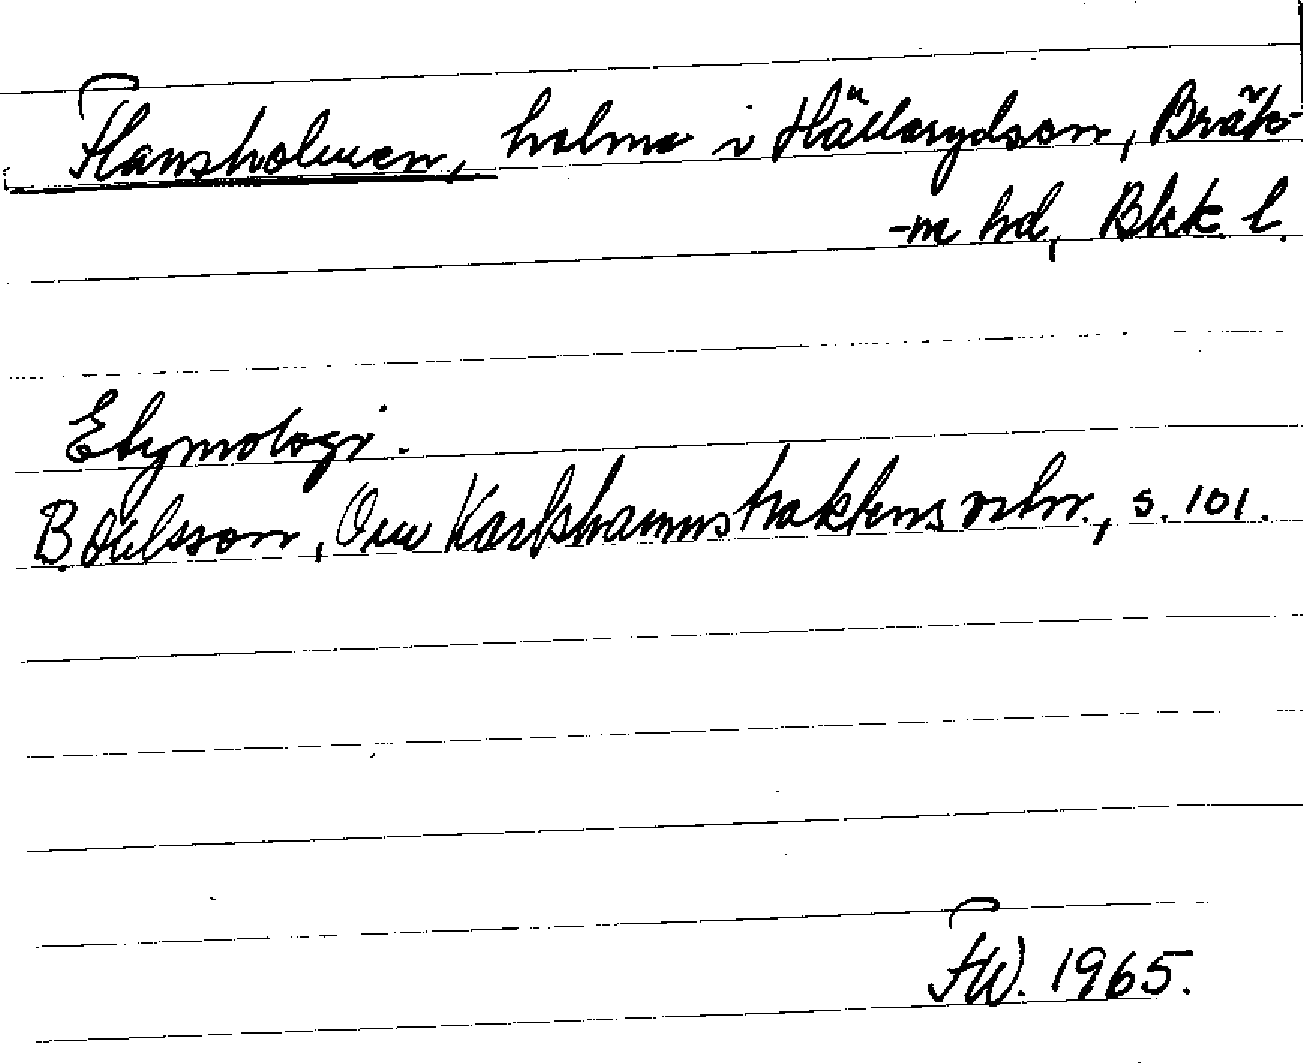 Flansholmen, holme i Hällarydsån, Bräk-
-ne hd, Bkk. l.
Etymologi.
B. Ohlsson, Om Karlshamnstraktens
s. 101.
FW. 1965.